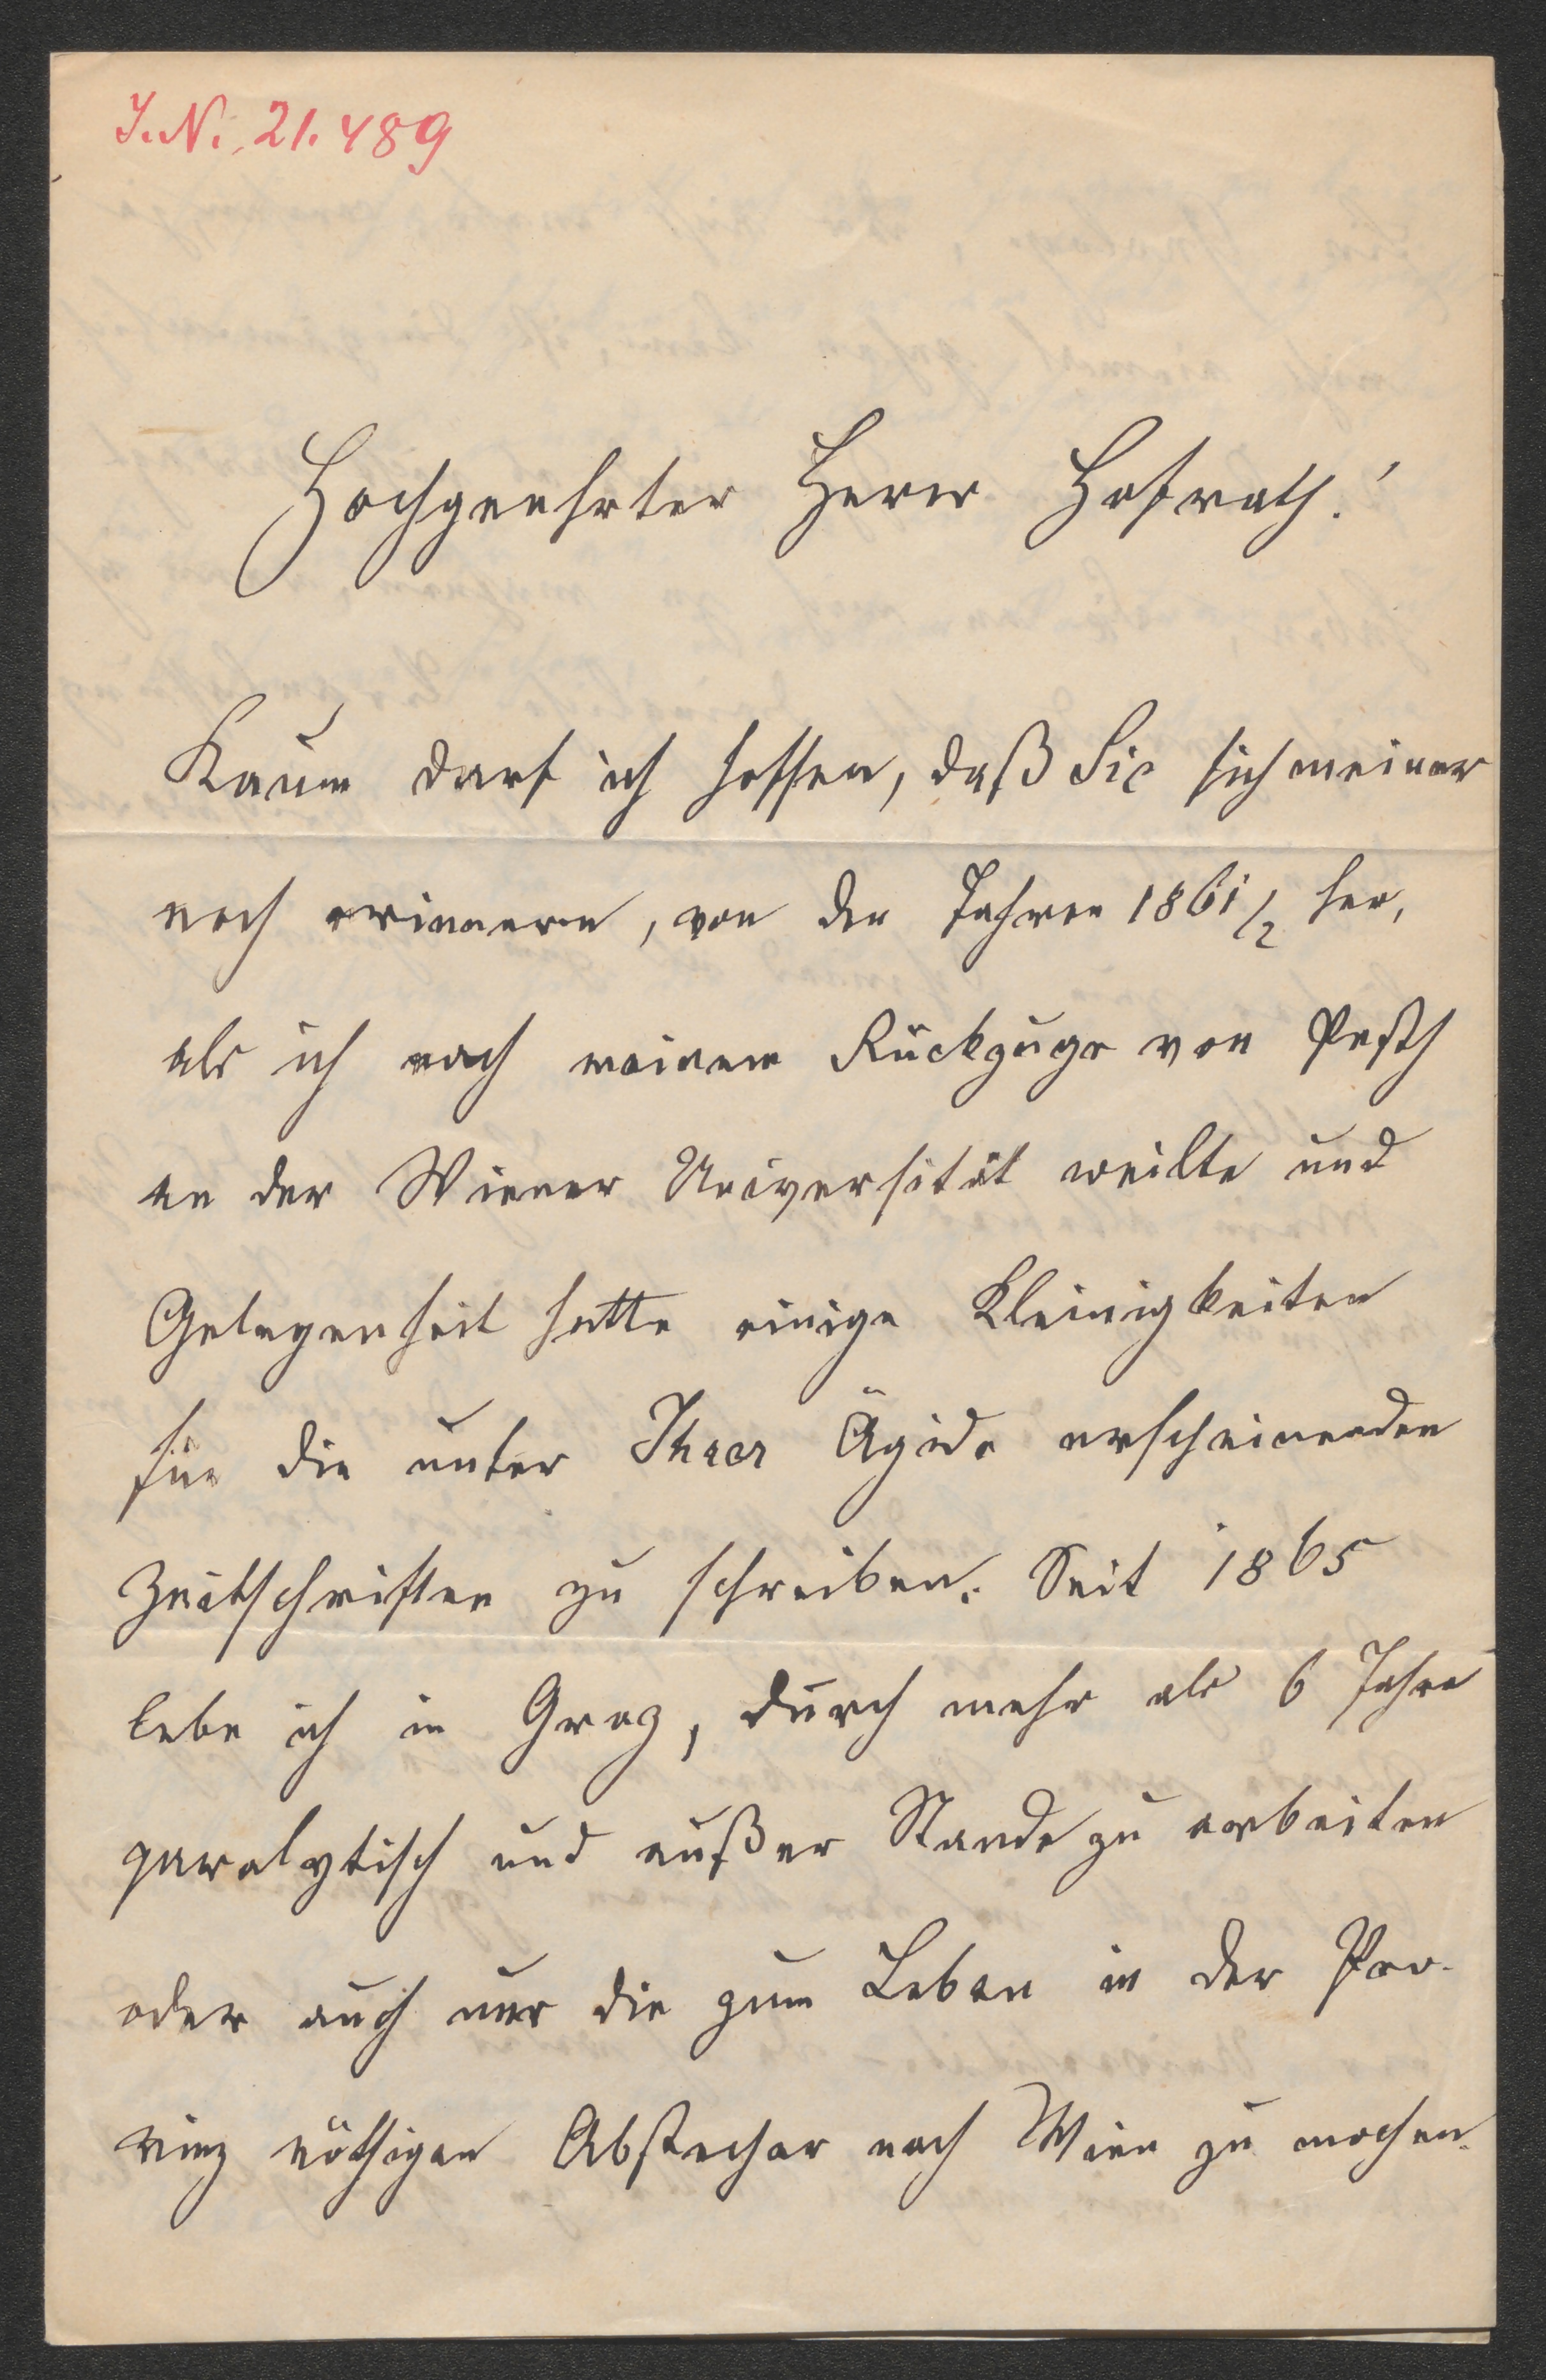 I.N. 21.489
Hochgeehrter Herr Hofrath!
Kaum darf ich hoffen, daß Sie sich meiner
noch erinnern, von den Jahren 1861/2 her,
als ich nach meinem Rückzuge von Pesth
an der Wiener Universität weilte und
Gelegenheit hatte einige Kleinigkeiten
für die unter Ihrer Ägide erscheinenden
Zeitschriften zu schreiben. Seit 1865
lebe ich in Graz, durch mehr als 6 Jahre
paralytisch und außer Stande zu arbeiten
oder auch nur die zum Leben in der Pro-
vinz nöthigen Abstecher nach Wien zu machen.